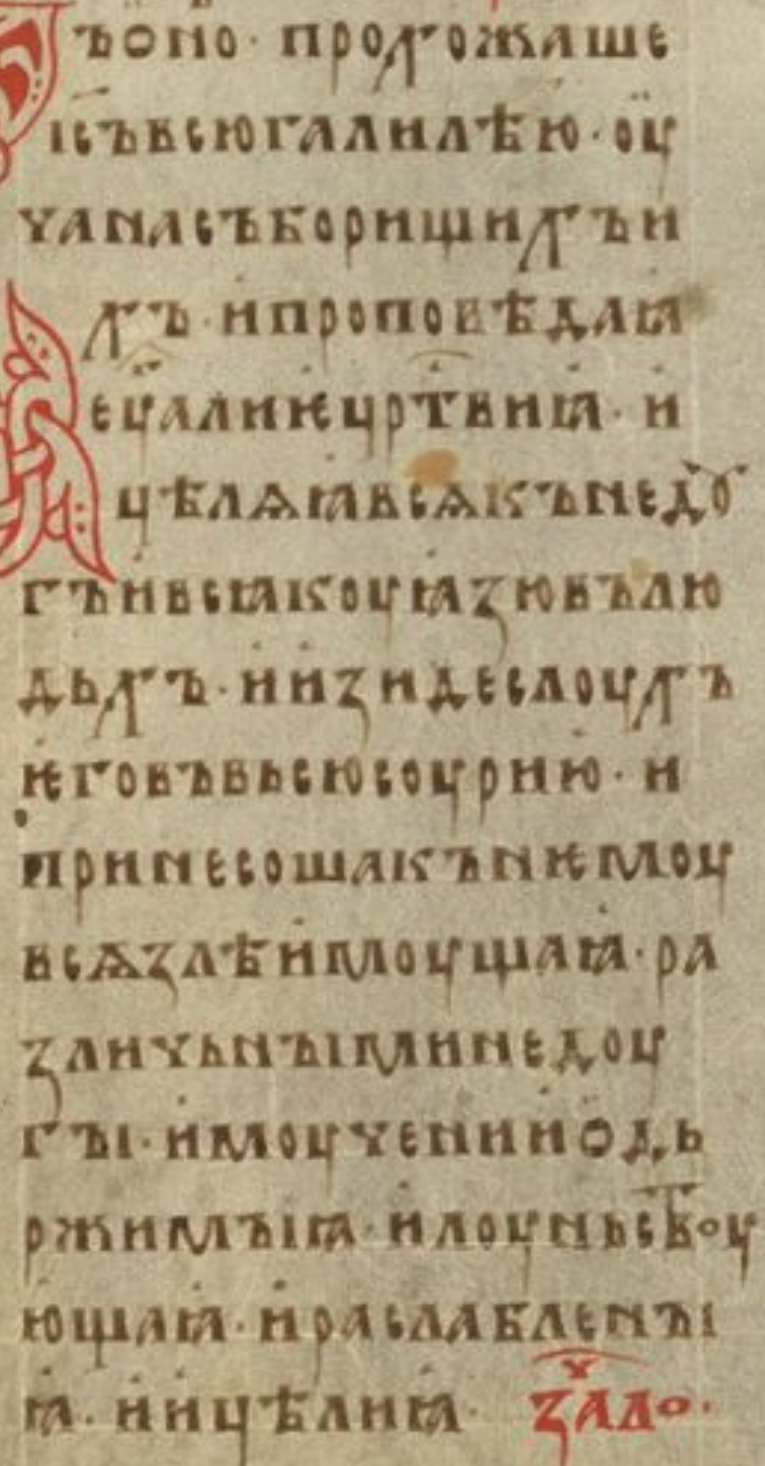 ъоно· прохожаше
іс҃ъвсюгалилѣю·оу
чанасъборищихъи
хъ·ипроповѣдаꙗ
еуа҃лиѥцр҃твиꙗ·и
цѣлѧꙗвсѧкънедѹ
гъивсꙗкоуꙗзювълю
дьхъ·иизидеслоухъ
ѥговъвьсюсоурию·и
принесошакънѥмоу
всѧзлѣимоущаꙗ·ра
зличьнъіминедоу
гъі·имоученииӧдь
ржимъіꙗ·илоуньствоу
ющаꙗ·ираслабленъі
ꙗ·иицѣлиꙗ· за҃ч до·